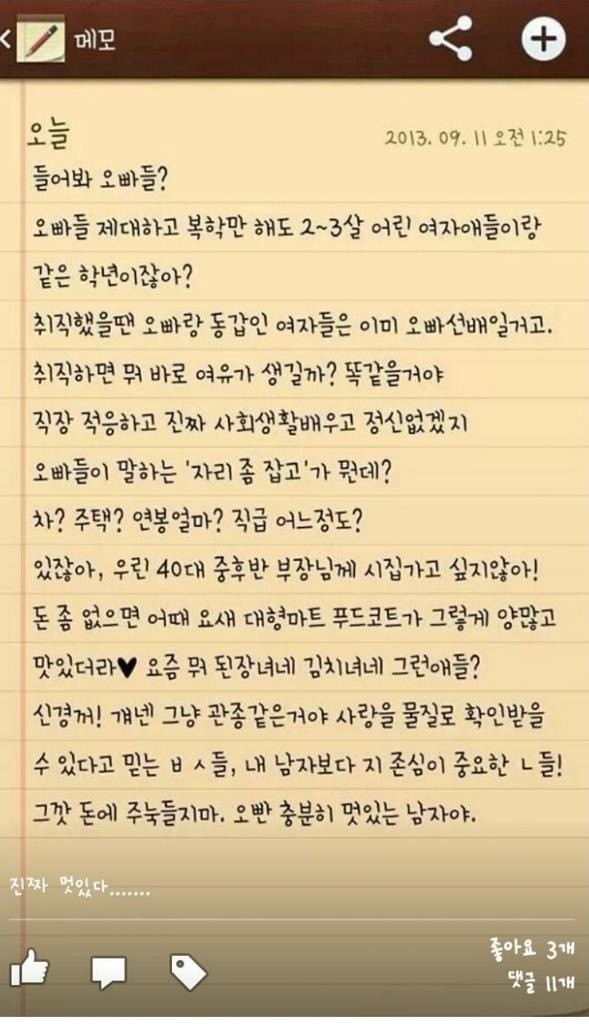 메모
오늘
2013. 09. 11 오전 1:25
들어봐 오빠들?
오빠들 제대하고 복학만 해도 2~3살 어린 여자애들이랑
같은 학년이잖아?
취직했을땐 오빠랑 동갑인 여자들은 이미 오빠선배일거고.
취직하면 뭐 바로 여유가 생길까? 똑같을거야
직장 적응하고 진짜 사회생활배우고 정신없겠지
오빠들이 말하는 '자리 좀 잡고'가 뭔데?
차? 주택? 연봉얼마? 직급 어느정도?
있잖아, 우린 40대 중후반 부장님께 시집가고 싶지않아!
돈 좀 없으면 어때 요새 대형마트 푸드코트가 그렇게 양많고
맛있더라♥ 요즘 뭐 된장녀네 김치녀네 그런애들?
신경꺼! 걔넨 그냥 관종같은거야 사랑을 물질로 확인받을
수 있다고 믿는 ㅂㅅ들, 내 남자보다 지 존심이 중요한 ㄴ들!
그깟 돈에 주눅들지마. 오빤 충분히 멋있는 남자야.
진짜 멋있다.......
좋아요 3개
댓글 11개